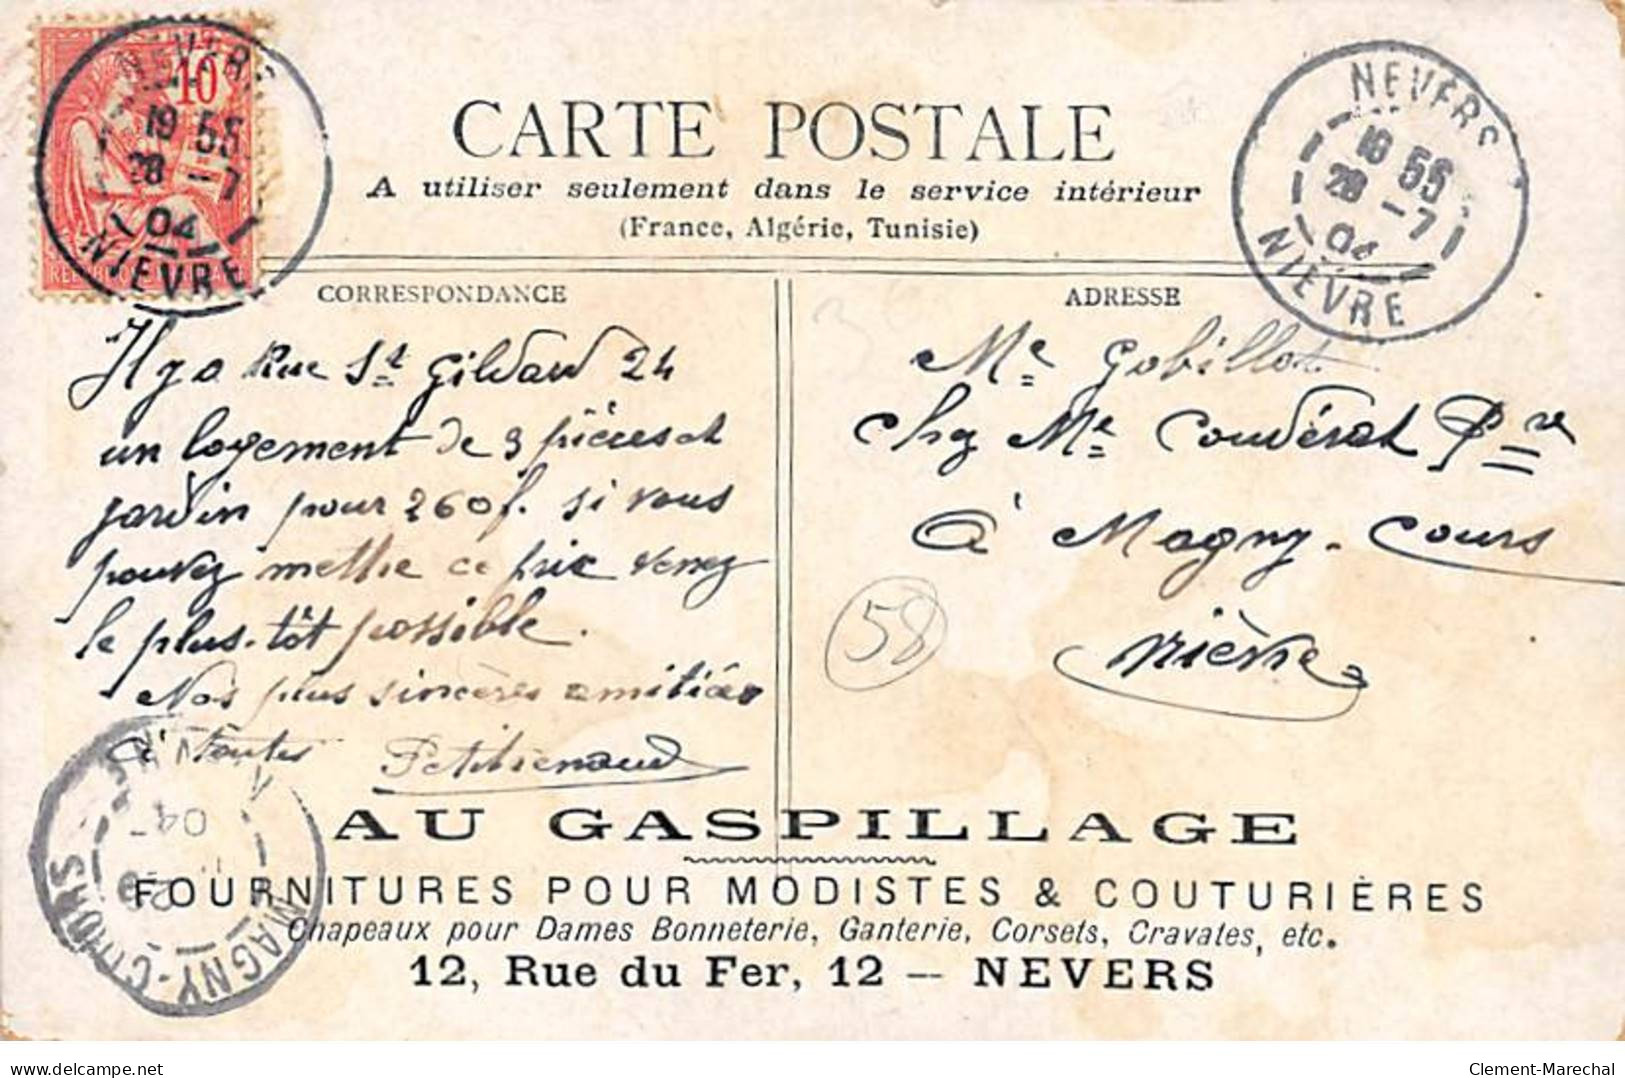 CARTE POSTALE
A utiliser seulement dans le service intérieur
(France, Algérie, Tunisie)
10
NEVERS
19 55
28 -7
04
NIEVRE
NEVERS
55
28 -7
04
NIEVRE
CORRESPONDANCE
Il y a Rue St Gildard 24
un logement de 3 pièces et
jardin pour 260 f. si vous
pouvez mettre ce prix venez
le plus-tôt possible.
Nos plus sincères amitiés
à toutes Petitrenaud
ADRESSE
Me Gobillot
chez Me Coudérat Pre
à Magny-Cours
Nièvre
58
MAGNY-COURS
04
AU GASPILLAGE
FOURNITURES POUR MODISTES & COUTURIÈRES
Chapeaux pour Dames Bonneterie, Ganterie, Corsets, Cravates, etc.
12, Rue du Fer, 12 — NEVERS
delcampe.net
Clement-Marechal